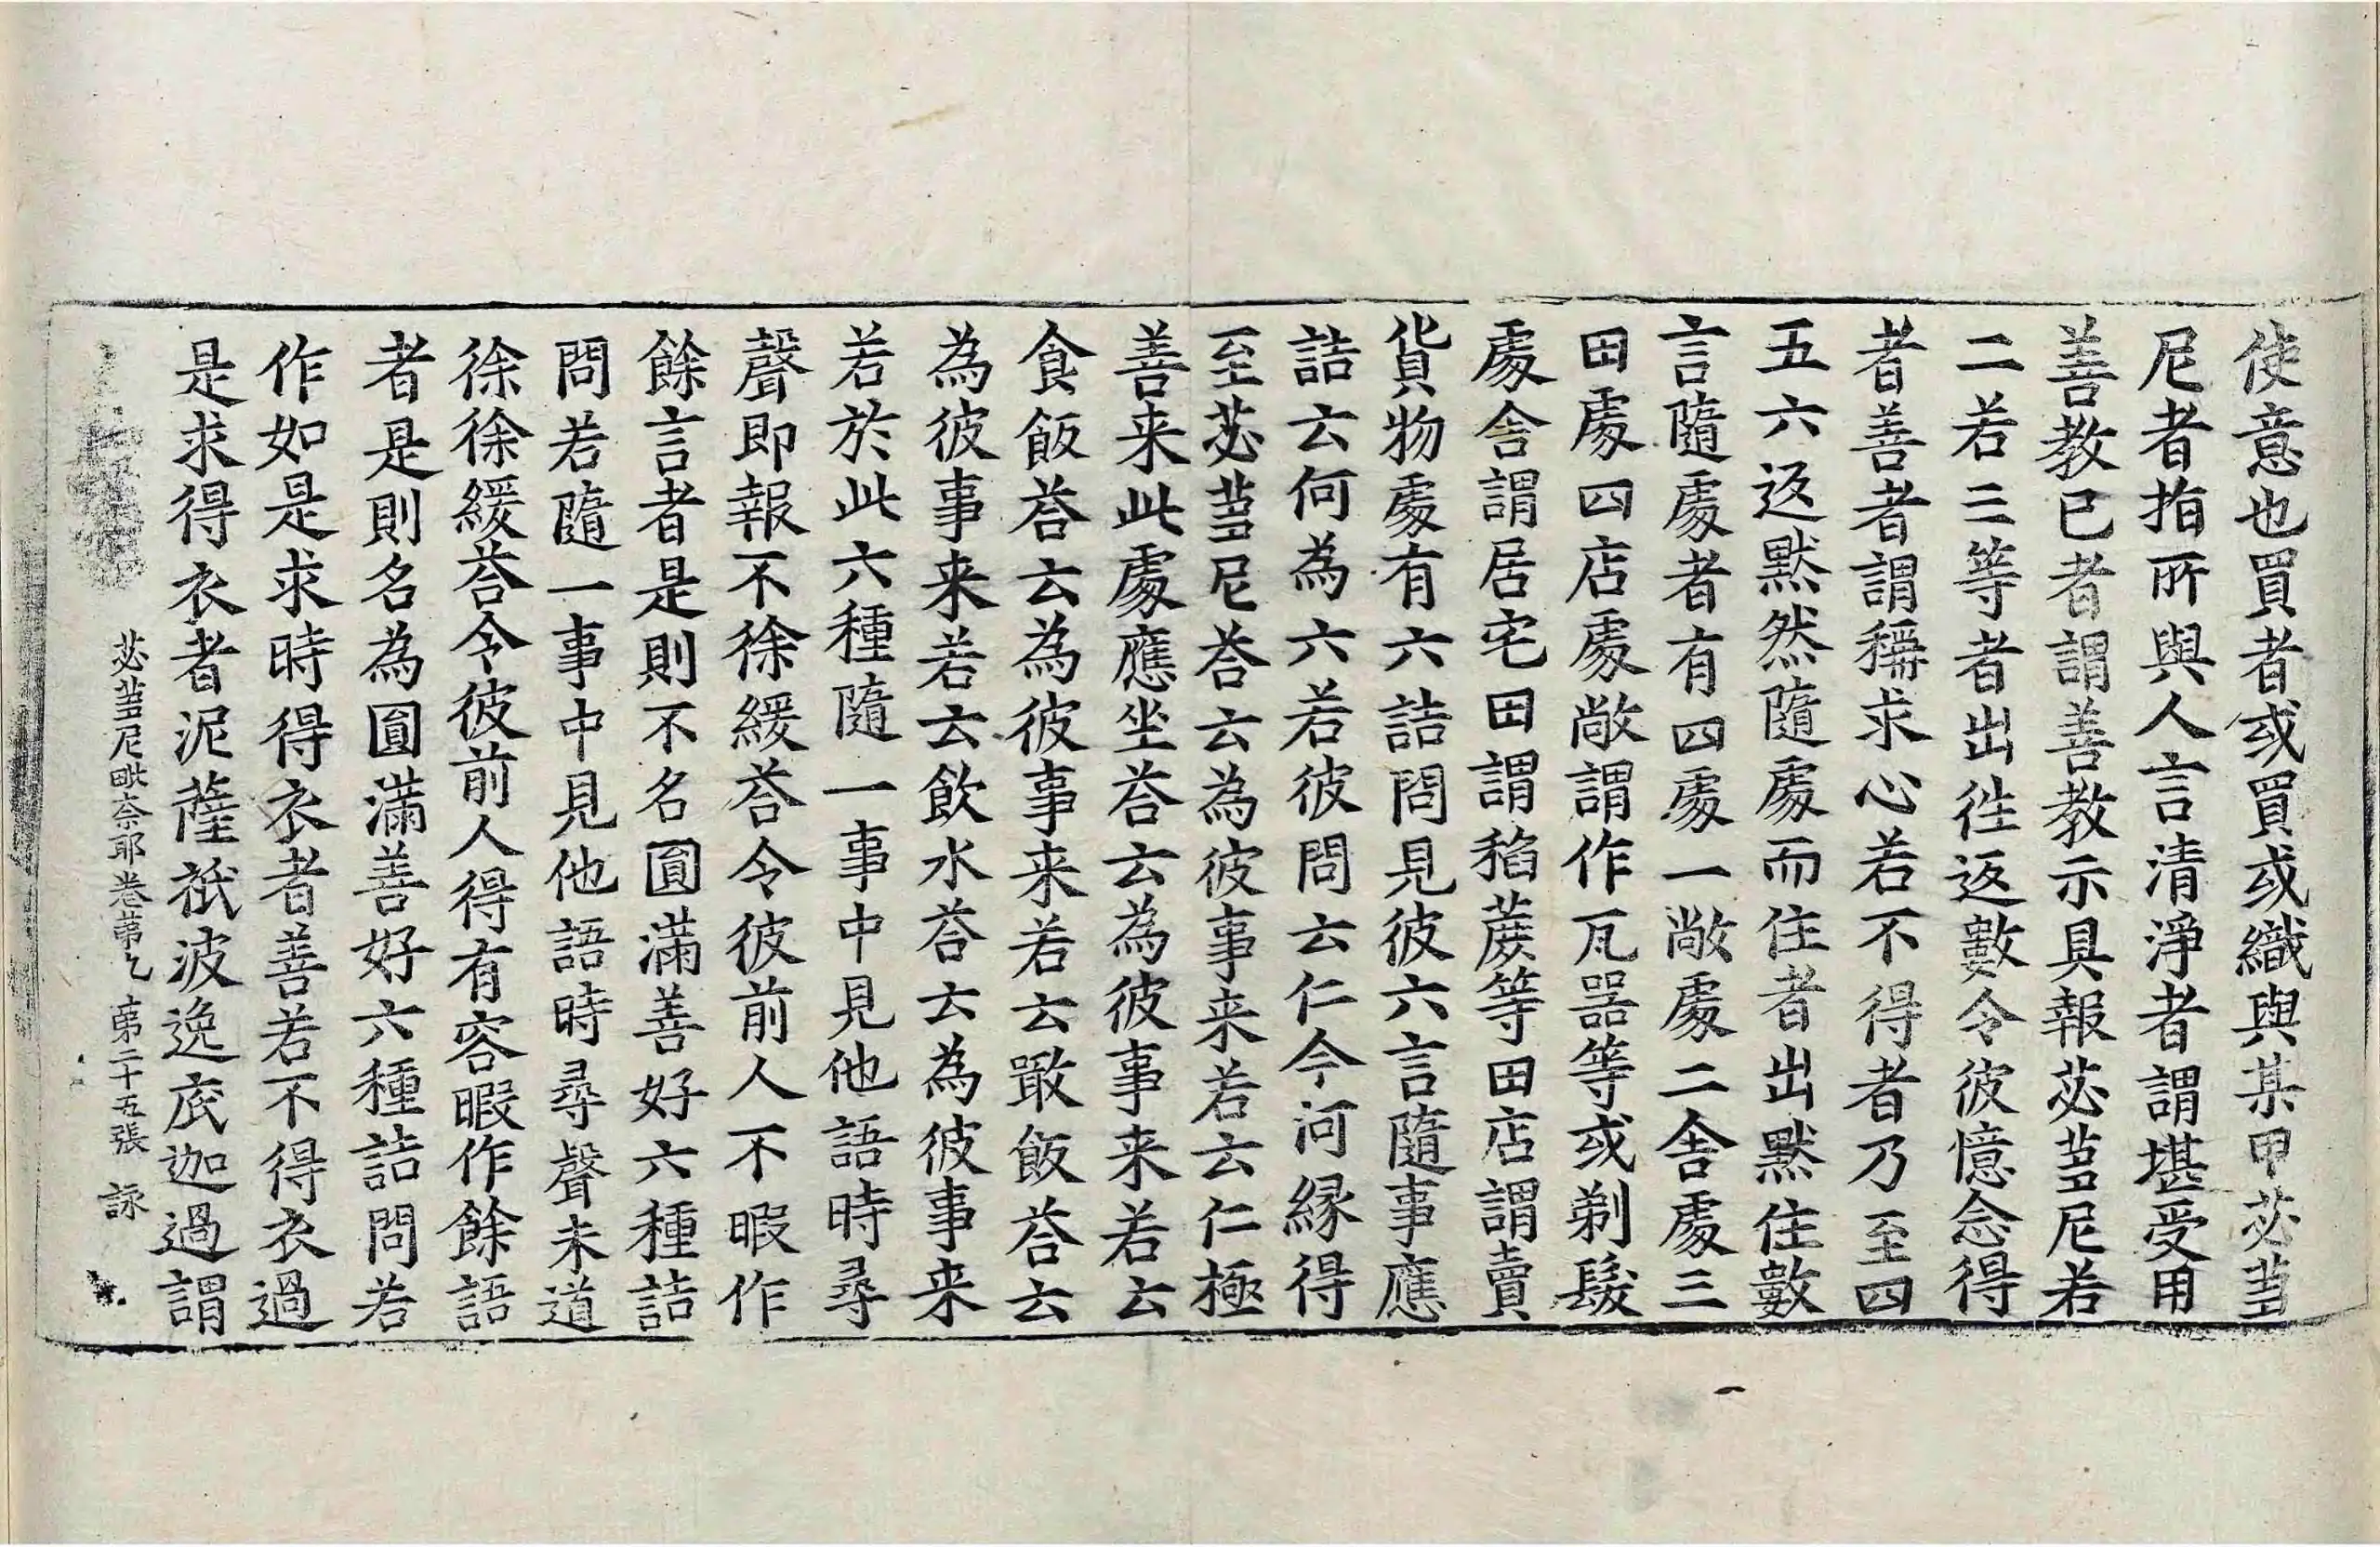 使意也買者或買或織與某甲苾蒭
尼者指所與人言清淨者謂堪受用
善教已者謂善教示具報苾蒭尼若
二若三等者出徃返數令彼憶念得
者善者謂稱求心若不得者乃至四
五六返默然隨處而住者出默住數
言隨處者有四處一敞處二舍處三
田處四店處敞謂作瓦器等或剃髮
處舍謂居宅田謂稻蔗等田店謂賣
貨物處有六詰問見彼六言隨事應
詰云何為六若彼問云仁今何緣得
至苾蒭尼荅云為彼事来若云仁極
善来此處應坐荅云為彼事来若云
食飯荅云為彼事来若云噉飯荅云
為彼事来若云飲水荅云為彼事来
若於此六種隨一事中見他語時尋
聲即報不徐緩荅令彼前人不暇作
餘言者是則不名圓滿善好六種詰
問若隨一事中見他語時尋聲未道
徐徐緩荅令彼前人得有容暇作餘語
者是則名為圓滿善好六種詰問若
作如是求時得衣者善若不得衣過
是求得衣者泥薩祇波逸底迦過謂
苾蒭尼毗奈耶卷第七 第二十五張 詠